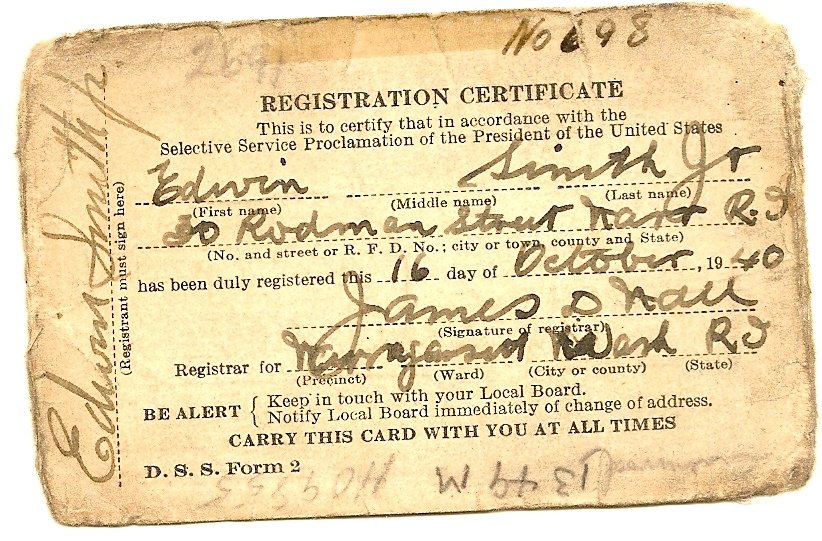 No 698
2691
REGISTRATION CERTIFICATE
This is to certify that in accordance with the
Selective Service Proclamation of the President of the United States
Edwin Smith Jr
(First name) (Middle name) (Last name)
30 Rodman Street Narr R.I
(No. and street or R. F. D. No.; city or town, county and State)
has been duly registered this 16 day of October, 1940
James D Nall
(Signature of registrar)
Registrar for Narragansett Wash R I
(Precinct) (Ward) (City or county) (State)
BE ALERT { Keep in touch with your Local Board.
Notify Local Board immediately of change of address.
CARRY THIS CARD WITH YOU AT ALL TIMES
D. S. S. Form 2
Edwin Smith Jr.
(Registrant must sign here)